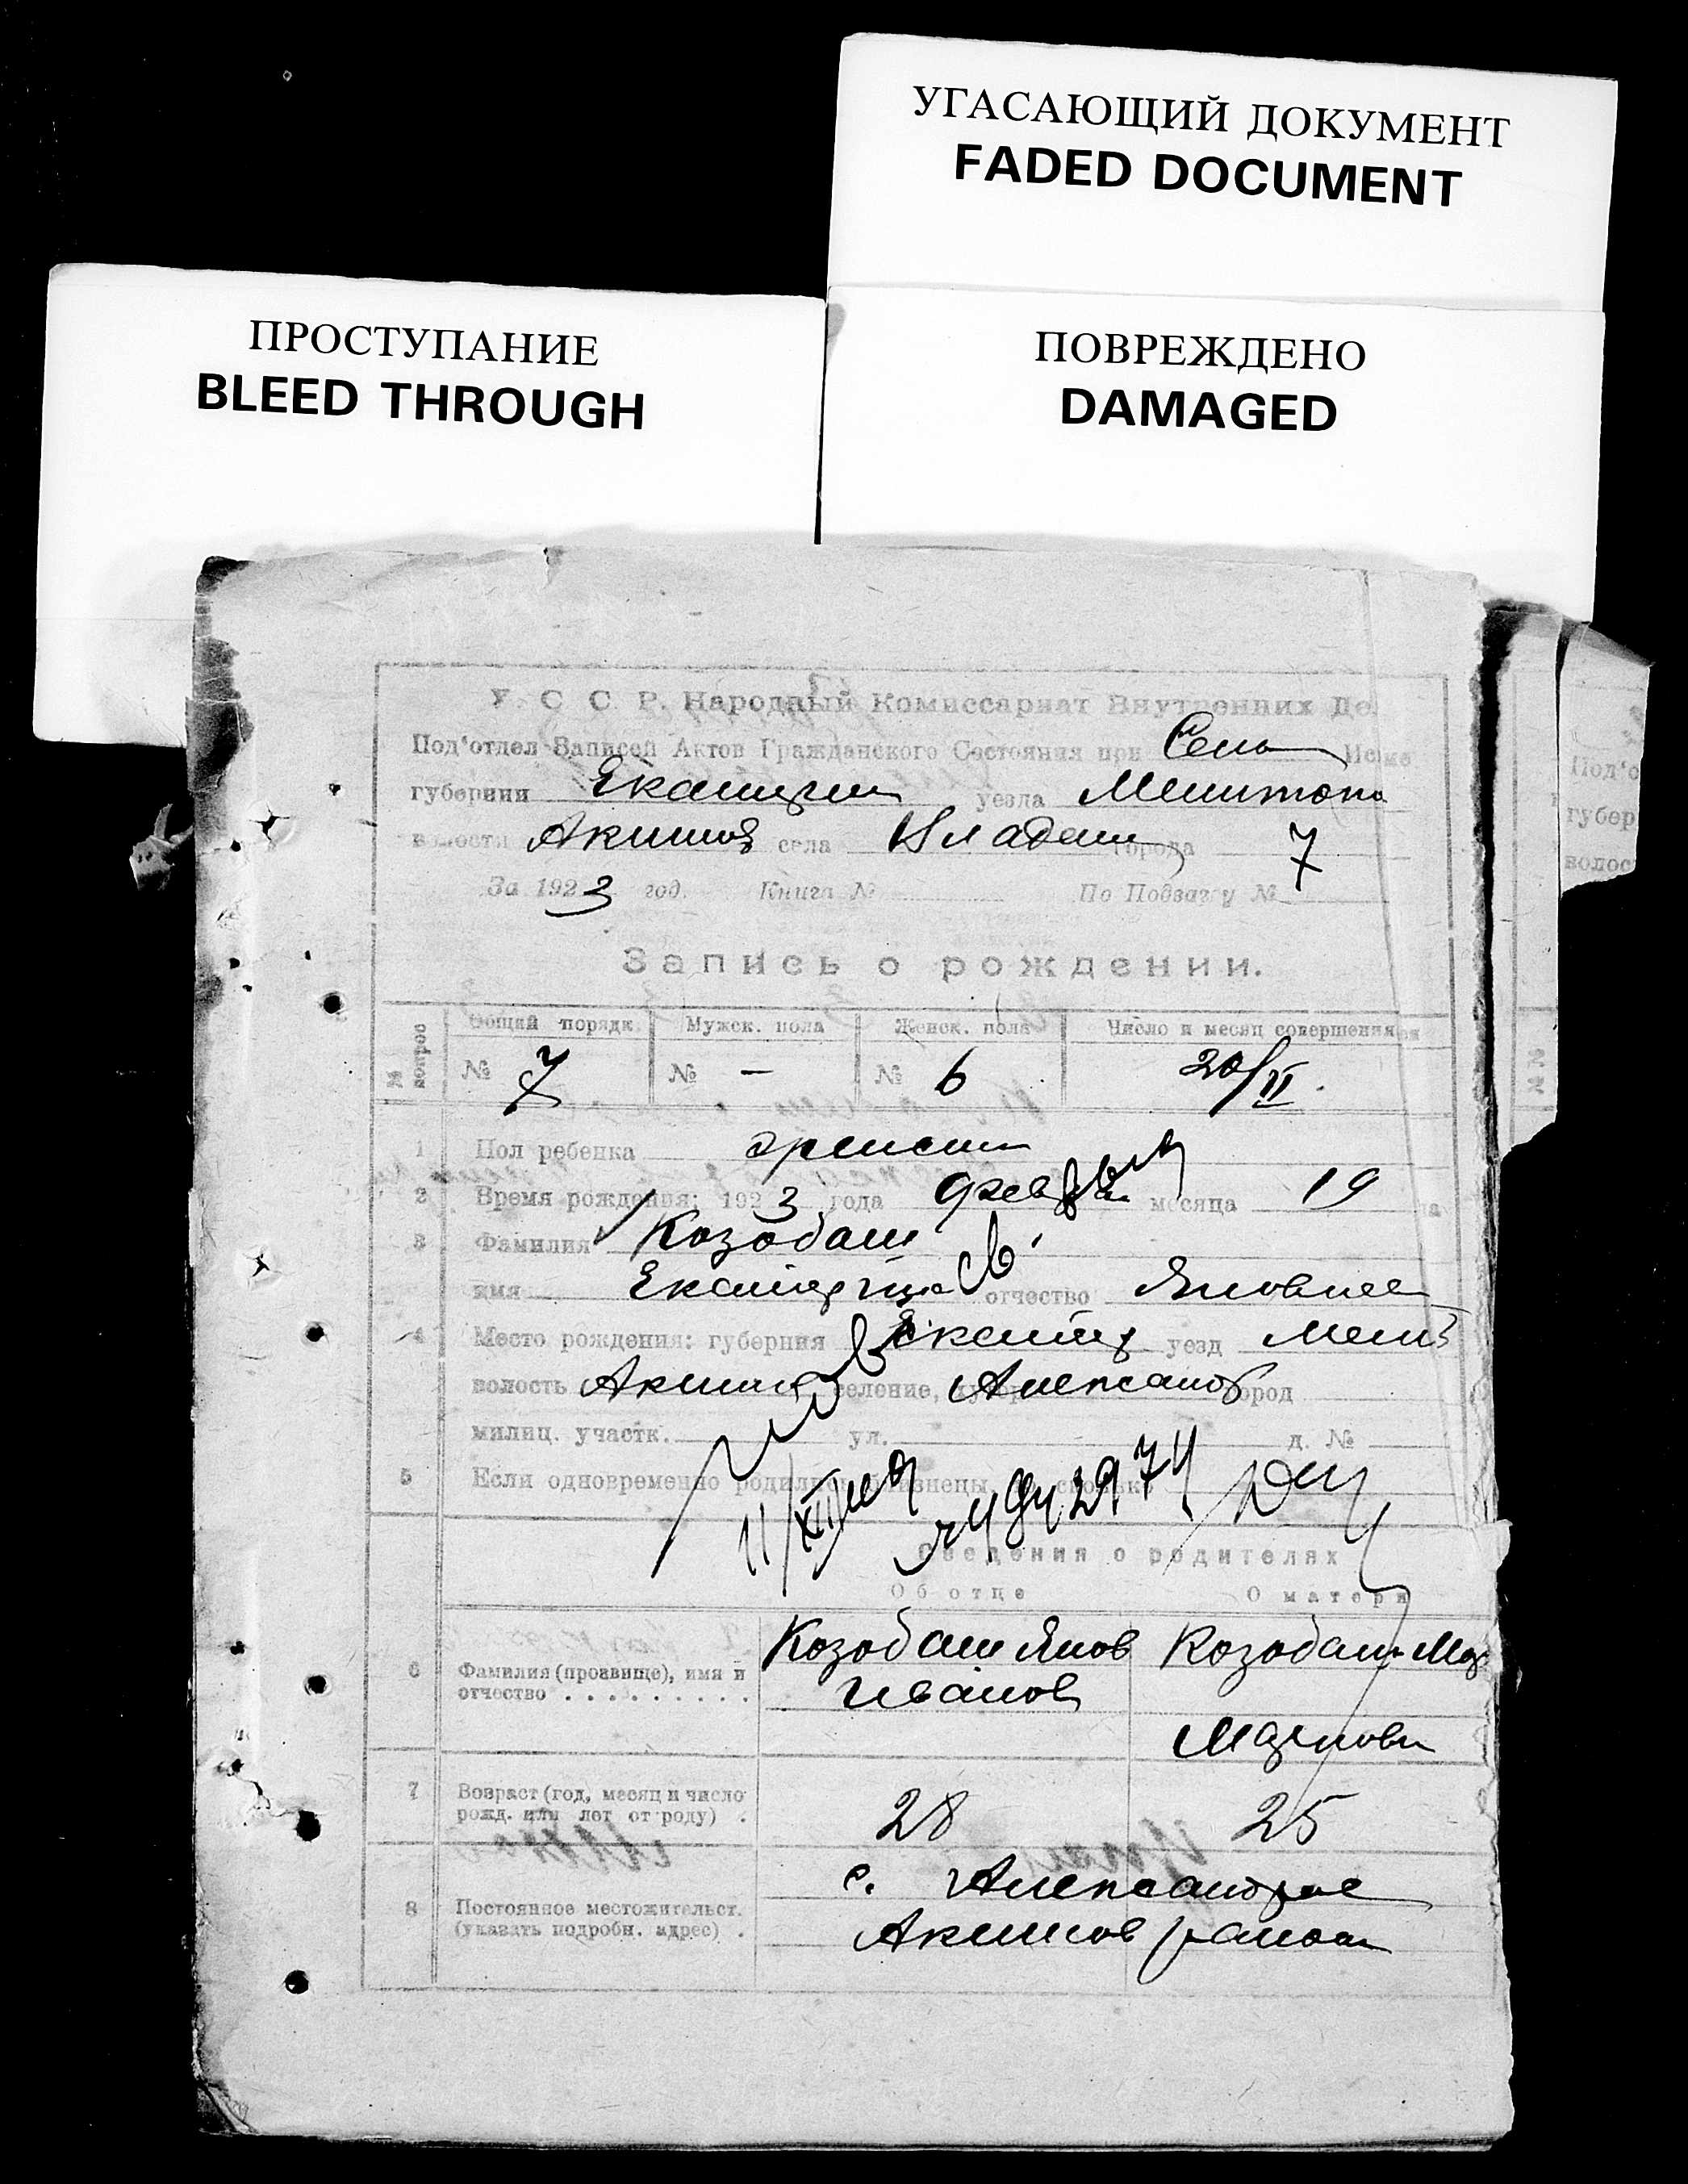 УГАСАЮЩИЙ ДОКУМЕНТ
FADED DOCUMENT
ПРОСТУПАНИЕ
BLEED THROUGH
ПОВРЕЖДЕНО
DAMAGED
У. С С Р. Народный Комиссариат Внутренних Де
Под'отдел Записей Актов Гражданского Состояния при Сель Испо
губернии Екатерин уезла Мелитопо
волости Акимов села Владим города
За 1923 год. Книга № По Подзагсу № 7
Запись о рождении.
№ вопрос Общий порядк. Мужск. пола Женск. пола Число и месяц совершения
№ 7 № — № 6 20/II.
1 Пол ребенка женски
2 Время рождения: 1923 года февраля месяца 19
3 Фамилия Козобаш
имя Екатерина отчество Яковлев
4 Место рождения: губерния Екатер уезд Мелит
волость Акимов селение, Александр город
милиц. участк. ул. д. №
5 Если одновременно родились близнецы, сколько
Сведения о родителях
Об отце О матери
6 Фамилия (прозвище), имя и отчество
Козобаш Яков Козобаш Мар
Иванов
Марков
7 Возраст (год, месяц и число рожд. или лет от роду)
28 25
8 Постоянное местожительст. (указать подробн. адрес)
с. Александров
Акимов район